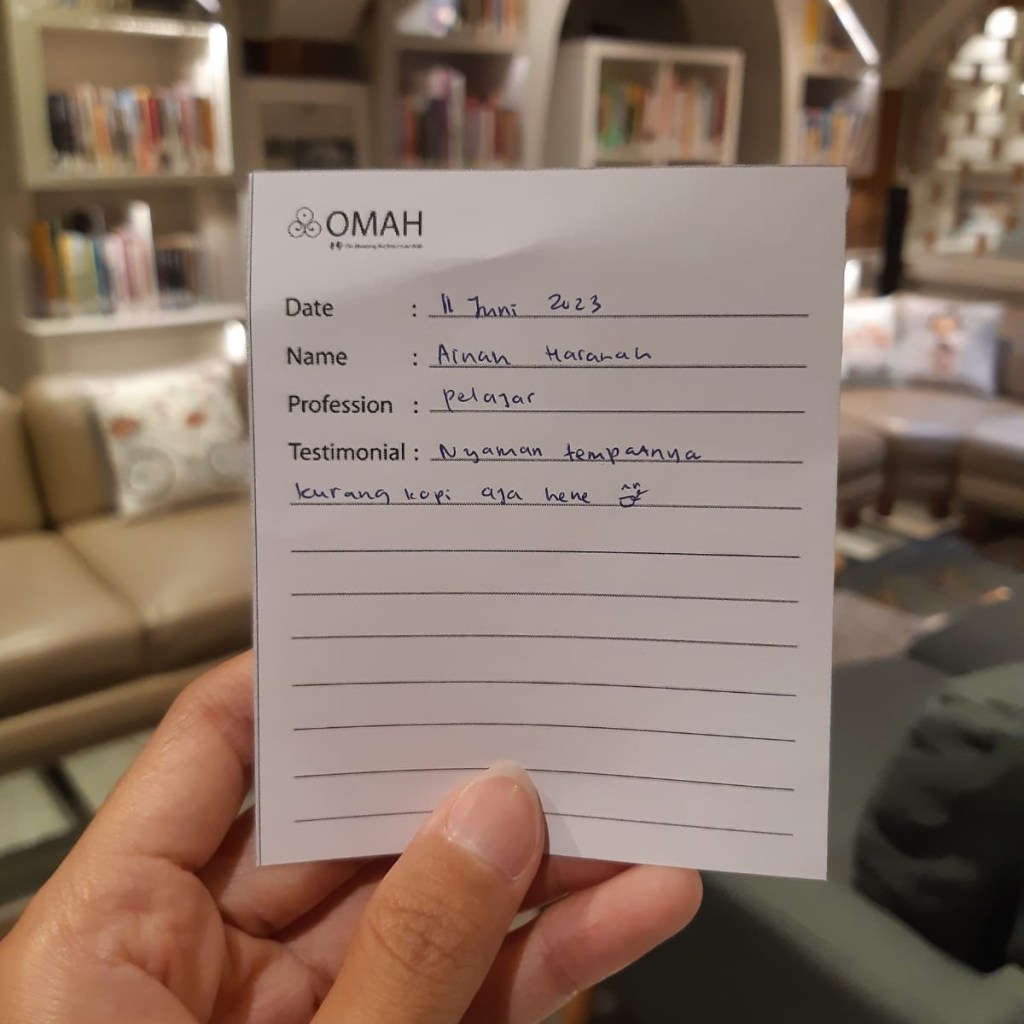 OMAH
Date : 11 Juni 2023
Name : Ainan Hasanah
Profession : Pelajar
Testimonial : Nyaman tempatnya
kurang kopi aja hehe